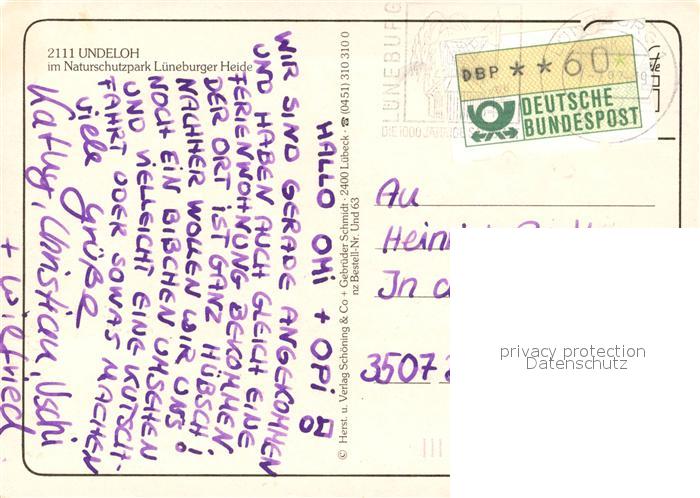 2111 UNDELOH
im Naturschutzpark Lüneburger Heide
HALLO OMI + OPI
WIR SIND GERADE ANGEKOMMEN
UND HABEN AUCH GLEICH EINE
FERIENWOHNUNG BEKOMMEN
DER ORT IST GANZ HÜBSCH!
NACHHER WOLLEN WIR UNS
NOCH EIN BIßCHEN UMSEHEN
UND VIELLEICHT EINE KUTSCH-
FAHRT ODER SOWAS MACHEN
Viele Grüße
Kathy, Christian, Uschi
+ Wilfried
© Herst. u. Verlag Schöning & Co + Gebrüder Schmidt · 2400 Lübeck · ☎ (0451) 310 310 0
nz Bestell-Nr. Und 63
LÜNEBURG
DBP * * 60 *
DEUTSCHE
BUNDESPOST
An
In
3507
privacy protection
Datenschutz